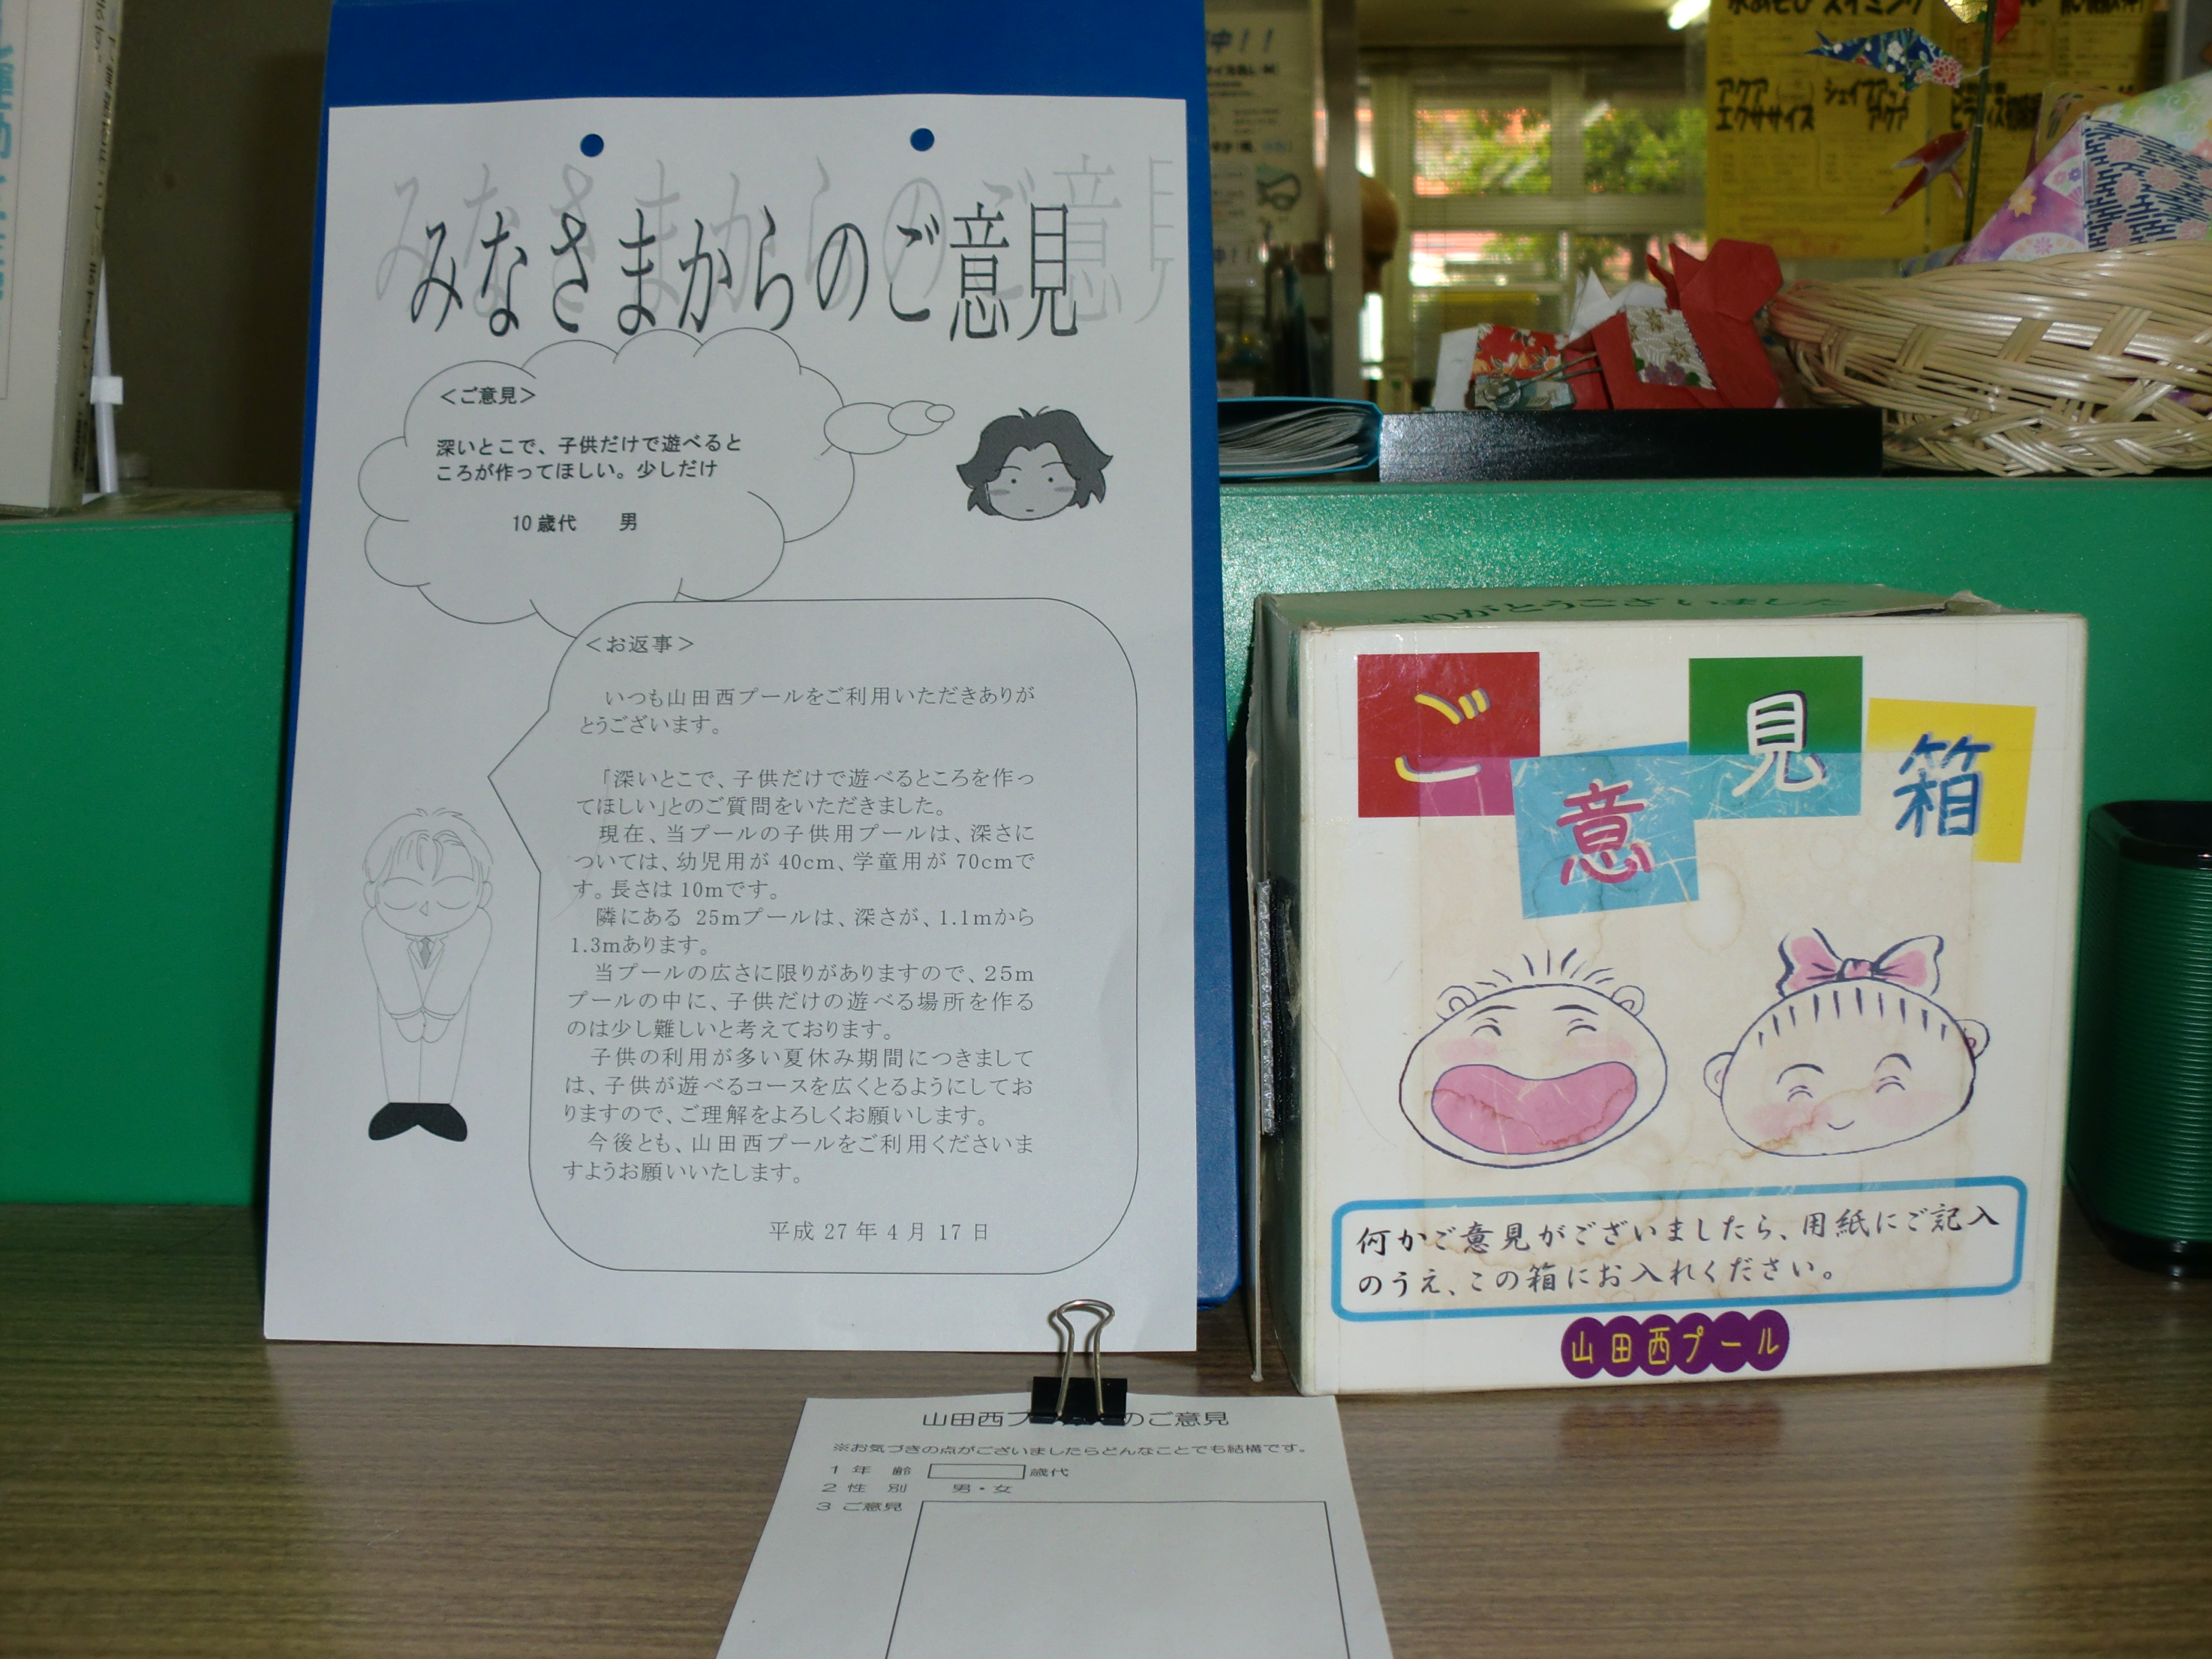 みなさまからのご意見
＜ご意見＞
深いとこで、子供だけで遊べると
ころが作ってほしい。少しだけ
10歳代　男
＜お返事＞
いつも山田西プールをご利用いただきありが
とうございます。
「深いとこで、子供だけで遊べるところを作っ
てほしい」とのご質問をいただきました。
現在、当プールの子供用プールは、深さに
ついては、幼児用が 40cm、学童用が 70cmで
す。長さは 10mです。
隣にある 25mプールは、深さが、1.1mから
1.3mあります。
当プールの広さに限りがありますので、25m
プールの中に、子供だけの遊べる場所を作る
のは少し難しいと考えております。
子供の利用が多い夏休み期間につきまして
は、子供が遊べるコースを広くとるようにしてお
りますので、ご理解をよろしくお願いします。
今後とも、山田西プールをご利用くださいま
すようお願いいたします。
平成 27 年 4 月 17 日
ありがとうございました
ご意見箱
何かご意見がございましたら、用紙にご記入
のうえ、この箱にお入れください。
山田西プール
山田西プ
のご意見
※お気づきの点がございましたらどんなことでも結構です。
1 年　齢　歳代
2 性　別　男・女
3 ご意見
水あそび スイミング
アクア
エクササイズ
シェイプアップ
アクア
中！！